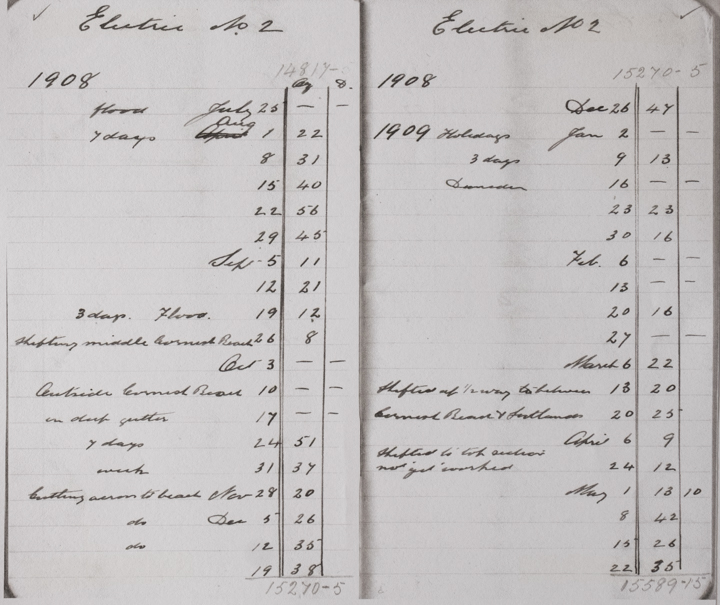 Electric No. 2
14817-
1908 Oz D.
flood July 25 — —
Aug
7 days April 1 22
8 31
15 40
22 56
29 45
Sept 5 11
12 21
3 days. Flood. 19 12
Shifting middle Cornish Beach 26 8
Oct 3 — —
Outside Cornish Beach 10 — —
in deep gutter 17 — —
7 days 24 51
week 31 37
Cutting across to beach Nov 28 20
do Dec 5 26
do 12 35
19 38
15270-5
Electric No 2
15270-5
1908
Dec 26 47
1909 Holidays Jan 2 — —
3 days 9 13
Dunedin 16 — —
23 23
30 16
Feb. 6 — —
13 — —
20 16
27 — —
March 6 22
Shifted up ½ way to between 13 20
Cornish Beach & 20 25
April 6 9
Shifted to top
not yet worked 24 12
May 1 13 10
8 42
15 26
22 35
15589-15